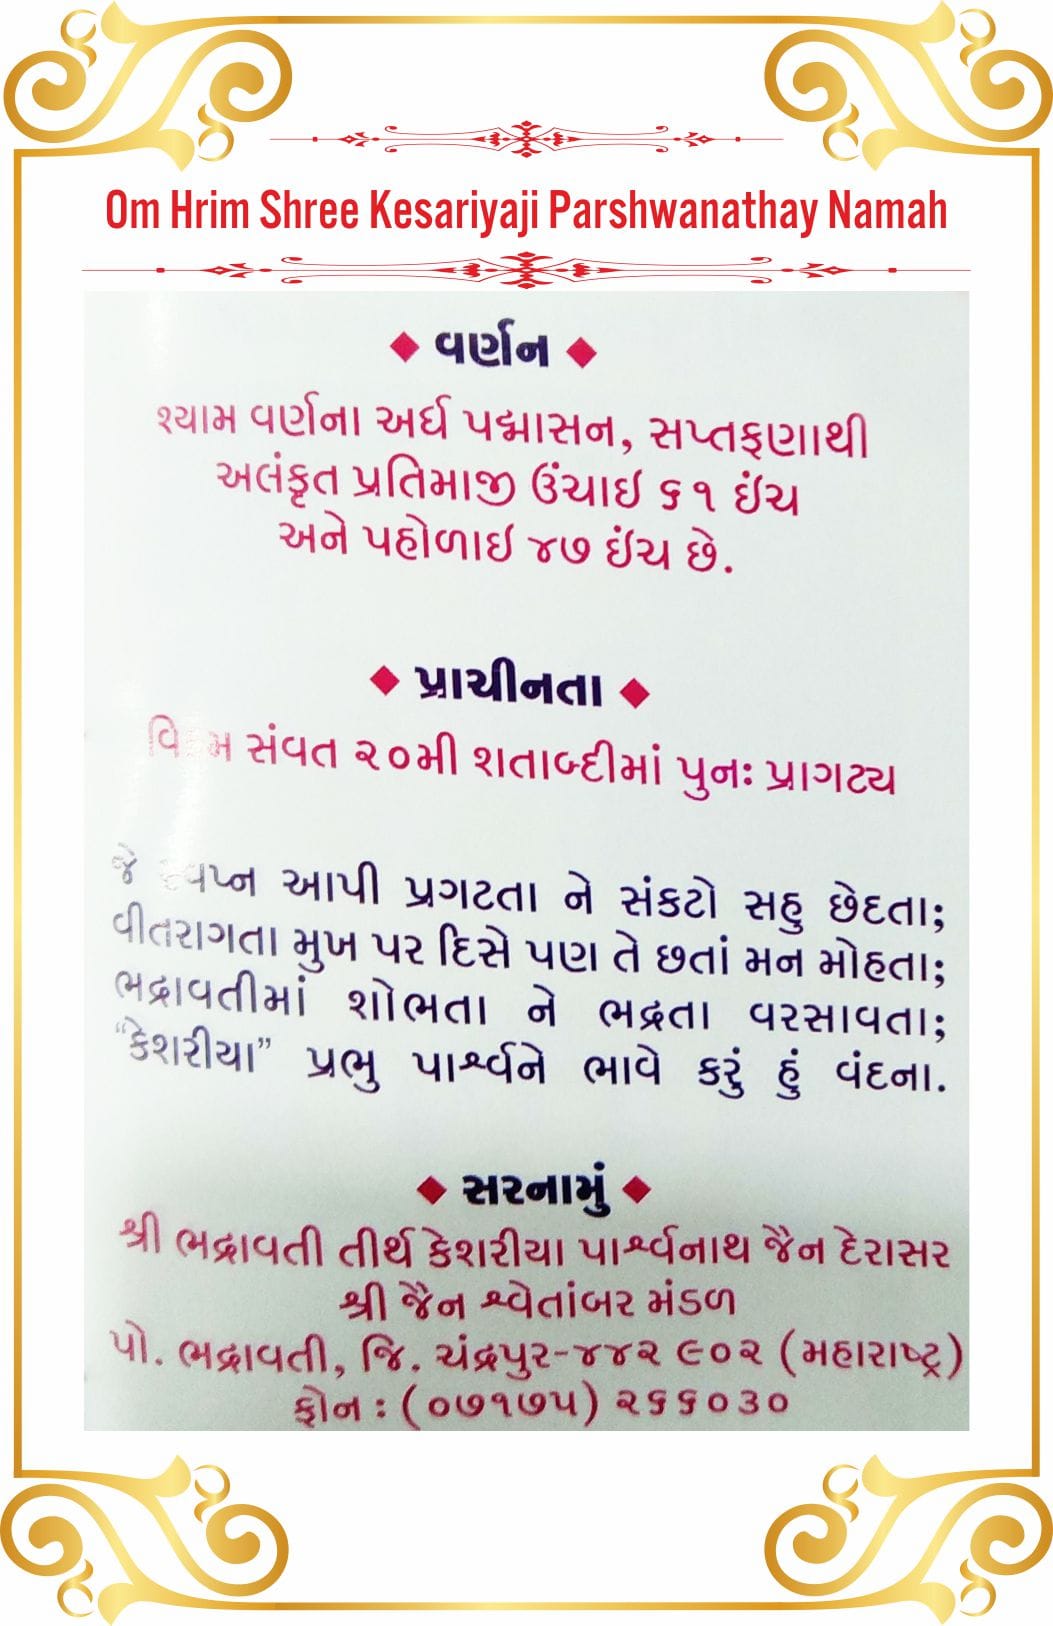 Om Hrim Shree Kesariyaji Parshwanathay Namah
વર્ણન
શ્યામ વર્ણના અર્ધ પદ્માસન, સપ્તફણાથી
અલંકૃત પ્રતિમાજી ઉંચાઇ ૬૧ ઈંચ
અને પહોળાઇ ૪૭ ઈંચ છે.
પ્રાચીનતા
સંવત ૨૦મી શતાબ્દીમાં પુનઃ પ્રાગટ્ય
જે સ્વપ્ન આપી પ્રગટતા ને સંકટો સહુ છેદતા;
વીતરાગતા મુખ પર દિસે પણ તે છતાં મન મોહતા;
ભદ્રાવતીમાં શોભતા ને ભદ્રતા વરસાવતા;
“કેશરીયા” પ્રભુ પાર્શ્વને ભાવે કરું હું વંદના.
સરનામું
શ્રી ભદ્રાવતી તીર્થ કેશરીયા પાર્શ્વનાથ જૈન દેરાસર
શ્રી જૈન શ્વેતાંબર મંડળ
પો. ભદ્રાવતી, જિ. ચંદ્રપુર-૪૪૨ ૯૦૨ (મહારાષ્ટ્ર)
ફોન : (૦૭૧૭૫) ૨૬૬૦૩૦